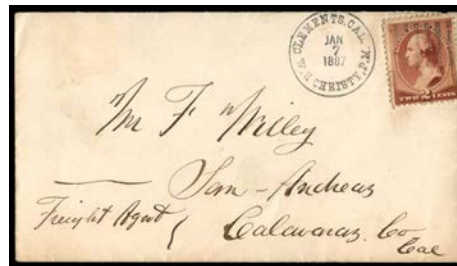 CLEMENTS, CAL.
JAN
7
1887
CHRISTY, P.M.
TWO 2 CENTS
Mr F Willey
San-Andreas
Freight Agent
Calaveras. Co
Cal